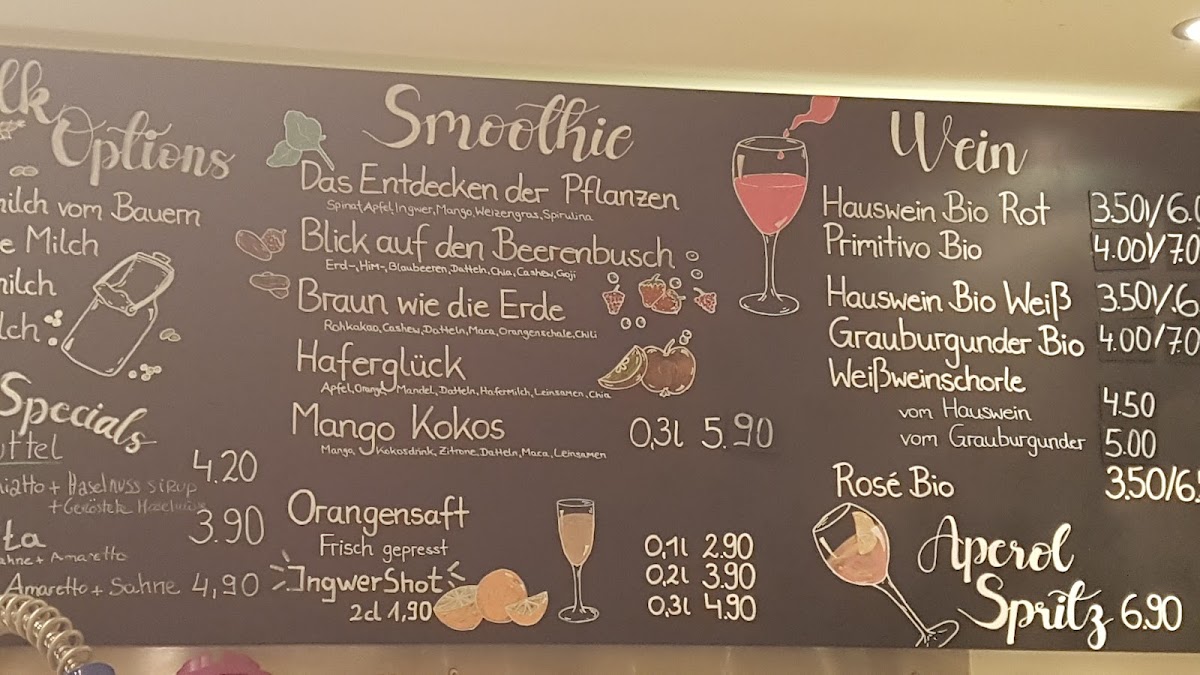 Options
milch vom Bauern
Milch
milch
Specials
4.20
+ Haselnuss sirup
+ Geröstete
3.90
+ Amaretto
Amaretto + Sahne 4,90
Smoothie
Das Entdecken der Pflanzen
Spinat, Apfel, Ingwer, Mango, Weizengras, Spirulina
Blick auf den Beerenbusch
Erd-, Him-, Blaubeeren, Datteln, Chia, Cashew, Goji
Braun wie die Erde
Rohkakao, Cashew, Datteln, Maca, Orangenschale, Chili
Haferglück
Apfel, Orange, Mandel, Datteln, Hafermilch, Leinsamen, Chia
Mango Kokos 0,3l 5.90
Mango, Kokosdrink, Zitrone, Datteln, Maca, Leinsamen
Orangensaft
Frisch gepresst
0,1l 2.90
0,2l 3.90
0,3l 4.90
IngwerShot
2cl 1,90
Wein
Hauswein Bio Rot 3.50
Primitivo Bio 4.00
Hauswein Bio Weiß 3.50
Grauburgunder Bio 4.00
Weißweinschorle
vom Hauswein 4.50
vom Grauburgunder 5.00
Rosé Bio 3.50
Aperol
Spritz 6.90